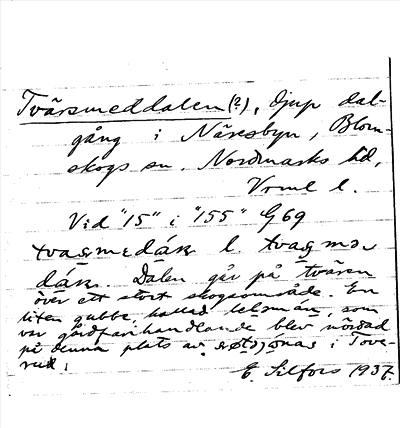 Tvärsmeddalen (?), djup dal-
gång i Näresbyn, Blom-
skogs sn. Nordmarks hd,
Vrml l.
Vid "15" i "155" G 69
dák. Dalen går på tvären
över ett stort skogsområde. En
liten gubbe, kallad som
var gårdfarihandlande blev mördad
på denna plats av i Tove-
rud.
E. Silfors 1937.